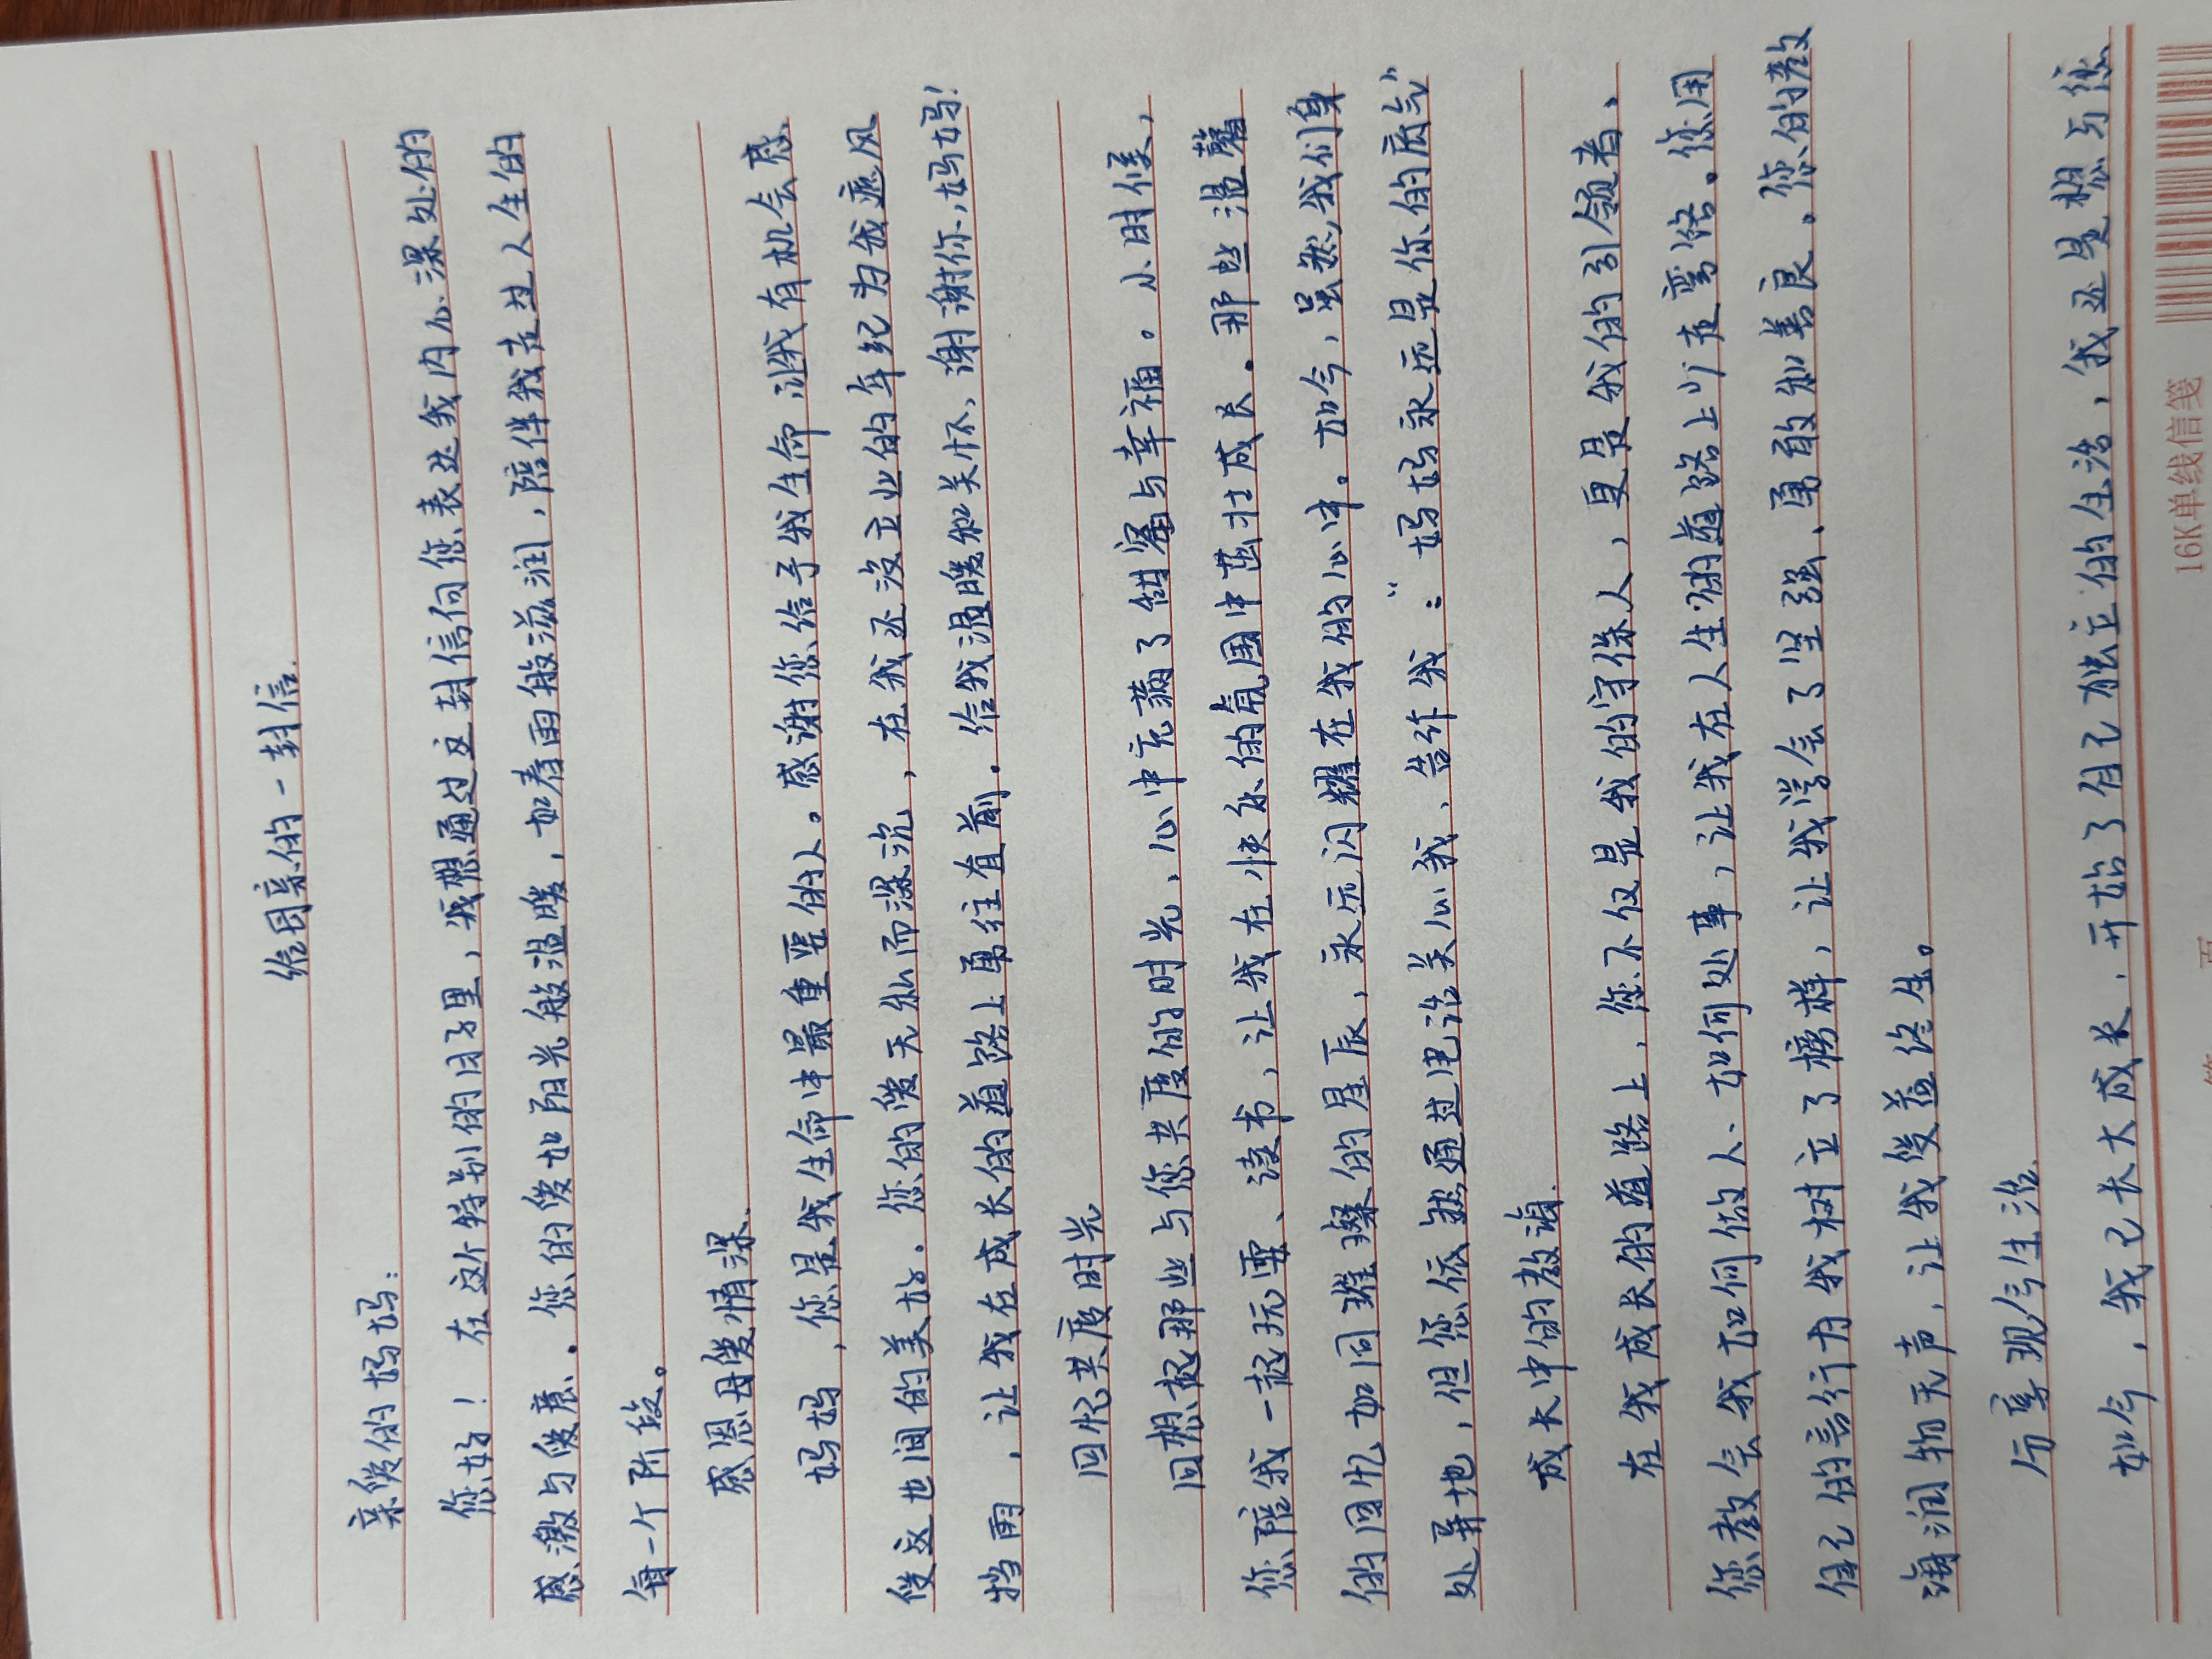 给母亲的一封信.
亲爱的妈妈:
您好！ 在这个特别的日子里，我想通过这封信向您表达我内心深处的
感激与爱意。您的爱如阳光般温暖，如春雨般滋润，陪伴我走过人生的
每一个阶段。
感恩母爱情深.
妈妈，您是我生命中最重要的人。感谢您给予我生命 让我有机会感
受这世间的美好。您的爱无私而深沉，在我还没立业的年纪为我遮风
挡雨，让我在成长的道路上勇往直前。给我温暖和关怀、谢谢你，妈妈！
回忆共度时光
回想起那些与您共度的时光，心中充满了甜蜜与幸福。小时候，
您陪我一起玩耍、读书，让我在快乐的氛围中茁壮成长。那些温馨
的回忆如同璀璨的星辰，永远闪耀在我的心中。如今，虽然我们身
处异地，但您依然通过电话关心我、告诉我：“妈妈永远是你的底气”
成长中的教诲.
在我成长的道路上，您不仅是我的守保人，更是我的引领者。
您教会我如何做人、如何处事，让我在人生的道路上少走弯路。您用
自己的言行为我树立了榜样，让我学会了坚强、勇敢和善良。您的教
诲润物无声，让我受益终生。
分享现今生活.
如今，我已长大成长，开始了自己独立的生活，我还是想与您
16K单线信笺
第 页